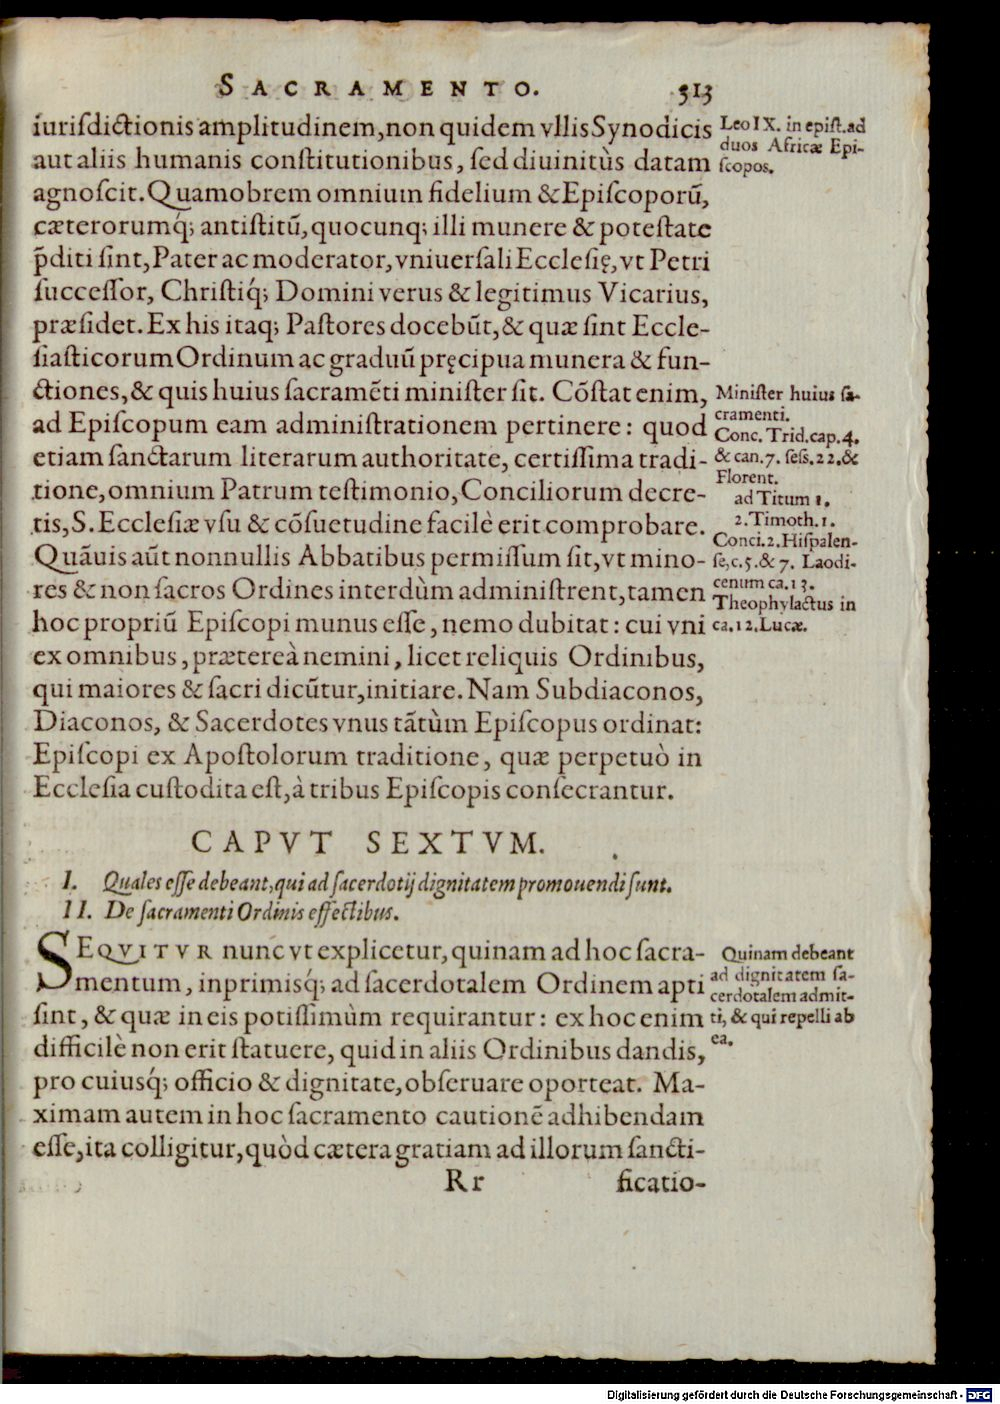 SACRAMENTO. 513
iurisdictionis amplitudinem, non quidem vllis Synodicis
aut aliis humanis constitutionibus, sed diuinitùs datam
agnoscit. Quamobrem omnium fidelium & Episcoporũ,
cæterorumq́; antistitũ, quocunq; illi munere & potestate
p̃diti sint, Pater ac moderator, vniuersali Ecclesię, vt Petri
successor, Christiq́; Domini verus & legitimus Vicarius,
præsidet. Ex his itaq; Pastores docebũt, & quæ sint Eccle-
siasticorum Ordinum ac graduũ pręcipua munera & fun-
ctiones, & quis huius sacramẽti minister sit. Cõstat enim,
ad Episcopum eam administrationem pertinere: quod
etiam sanctarum literarum authoritate, certissima tradi-
tione, omnium Patrum testimonio, Conciliorum decre-
tis, S. Ecclesiæ vsu & cõsuetudine facilè erit comprobare.
Quãuis aũt nonnullis Abbatibus permissum sit, vt mino-
res & non sacros Ordines interdùm administrent, tamen
hoc propriũ Episcopi munus esse, nemo dubitat: cui vni
ex omnibus, prætereà nemini, licet reliquis Ordinibus,
qui maiores & sacri dicũtur, initiare. Nam Subdiaconos,
Diaconos, & Sacerdotes vnus tãtùm Episcopus ordinat:
Episcopi ex Apostolorum traditione, quæ perpetuò in
Ecclesia custodita est, à tribus Episcopis consecrantur.
Leo IX. in epist. ad
duos Africæ Epi-
scopos.
Minister huius sa-
cramenti.
Conc. Trid. cap. 4.
& can. 7. sess. 22. &
Florent.
ad Titum 1.
2. Timoth. 1.
Conci. 2. Hispalen-
se, c. 5. & 7. Laodi-
cenum ca. 13.
Theophylactus in
ca. 12. Lucæ.
CAPVT SEXTVM.
I. Quales esse debeant, qui ad sacerdotij dignitatem promouendi sunt.
II. De sacramenti Ordinis effectibus.
SEQVITVR nunc vt explicetur, quinam ad hoc sacra-
mentum, inprimisq́; ad sacerdotalem Ordinem apti
sint, & quæ in eis potissimùm requirantur: ex hoc enim
difficilè non erit statuere, quid in aliis Ordinibus dandis,
pro cuiusq́; officio & dignitate, obseruare oporteat. Ma-
ximam autem in hoc sacramento cautionẽ adhibendam
esse, ita colligitur, quòd cætera gratiam ad illorum sancti-
Quinam debeant
ad dignitatem sa-
cerdotalem admit-
ti, & qui repelli ab
ea.
Rr ficatio-
Digitalisierung gefördert durch die Deutsche Forschungsgemeinschaft - DFG